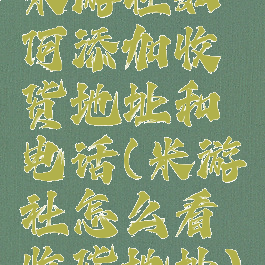 米游社如
何添加收
货地址和
电话(米游
社怎么看
收货地址)